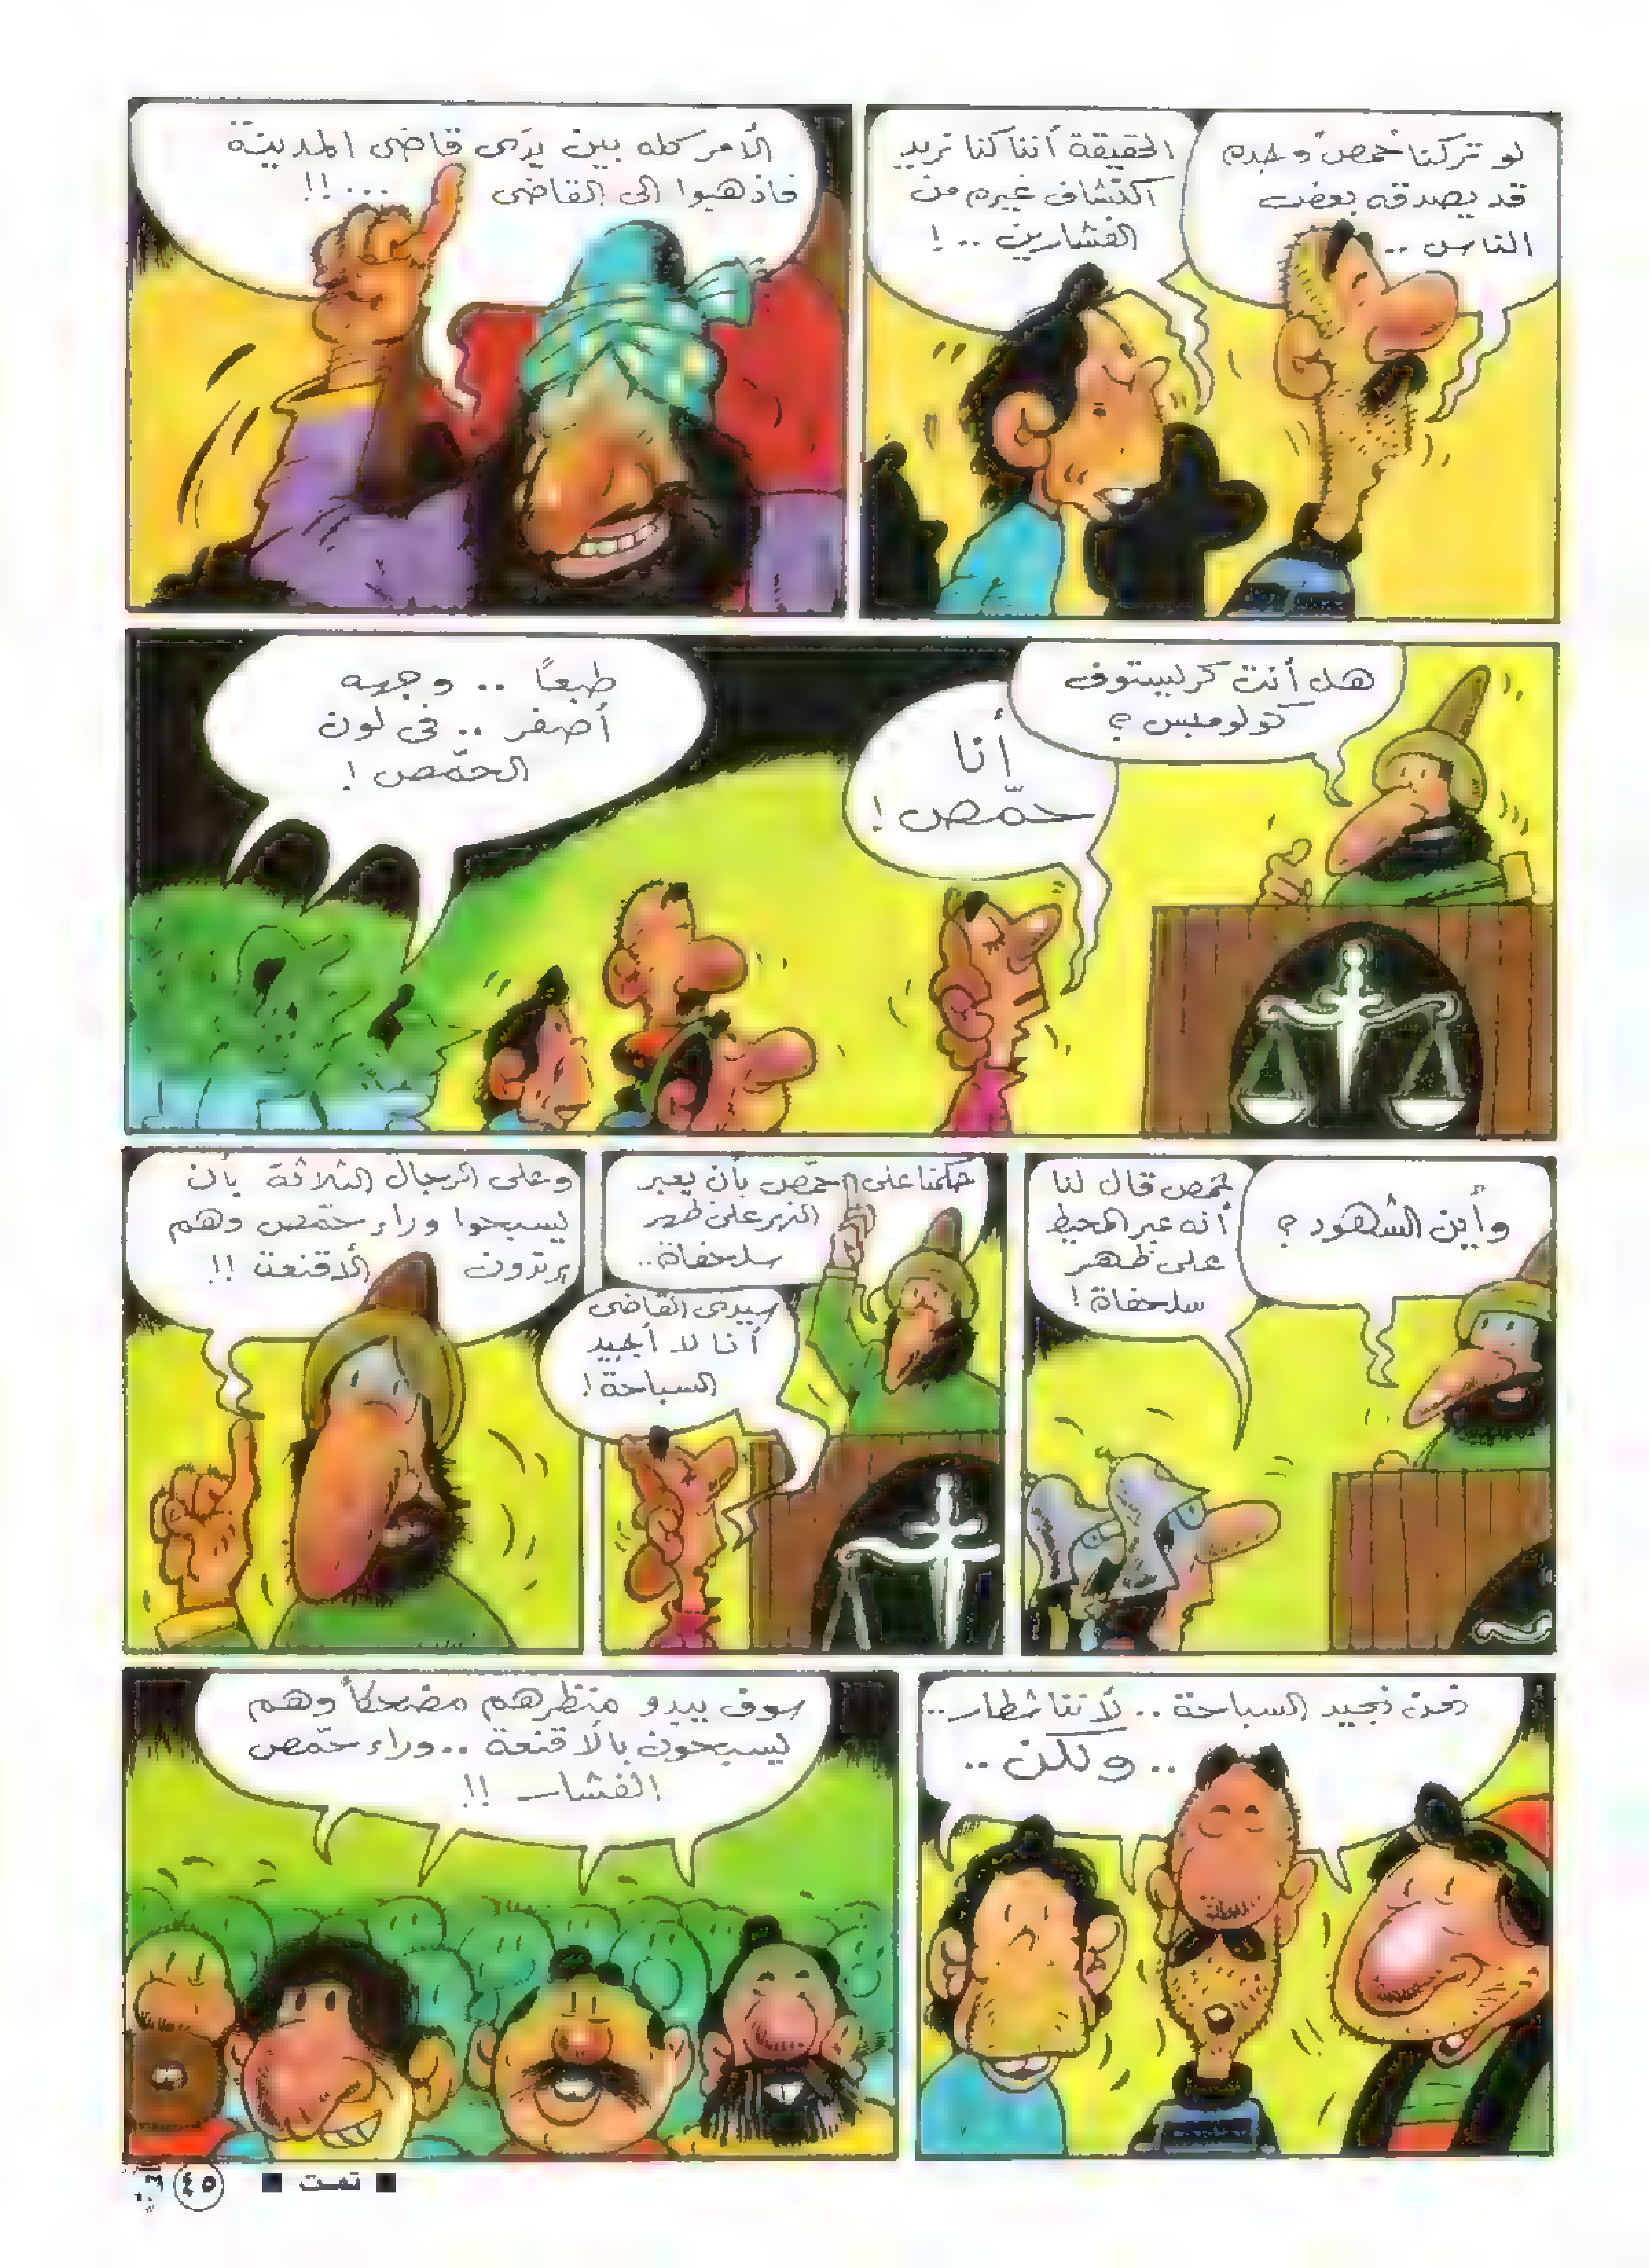 لو تركنا حمص وحده
قد يصدقه بعض
الناس ..
الحقيقة أننا كنا نريد
اكتشاف غيره من
الفشارين .. !
الأمر كله بين يدى قاضى المدينة
فاذهبوا إلى القاضى ...!!
هل أنت كرليستوف
كولومبس ؟
أنا
حمّص !
طبعًا .. وجهه
أصفر .. فى لون
الحمّص !
وأين الشهود ؟
حمص قال لنا
أنه عبر المحيط
على ظهر
سلحفاة !
حكمنا على حمّص بأن يعبر
النهر على ظهر
سلحفاة ..
سيدى القاضى
أنا لا أجيد
السباحة !
وعلى الرجال الثلاثة بأن
يسبحوا وراء حمّص وهم
يرتدون الأقنعة !!
نحن نجيد السباحة .. لأننا شطار ..
.. ولكن ..
سوف يبدو منظرهم مضحكاً وهم
يسبحون بالأقنعة .. وراء حمّص
الفشار !!
■ تمت ■
٤٥